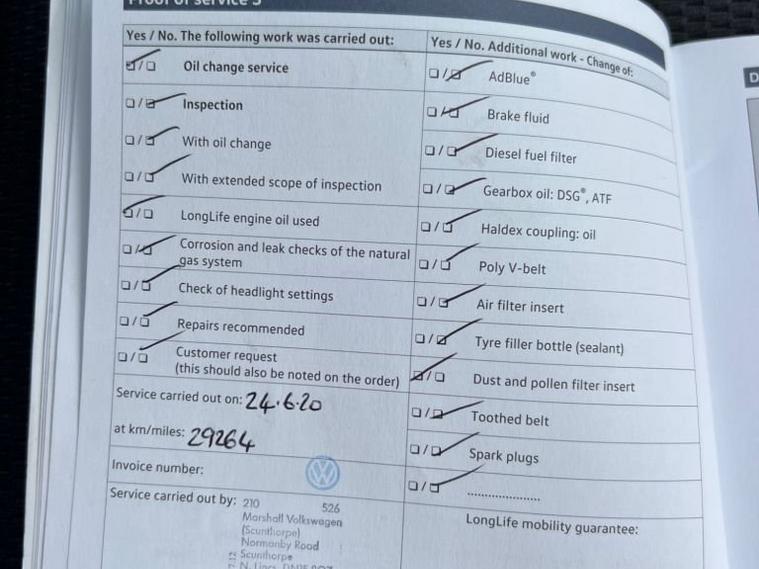 Proof of service 3
Yes / No. The following work was carried out:
Oil change service
Inspection
With oil change
With extended scope of inspection
LongLife engine oil used
Corrosion and leak checks of the natural
gas system
Check of headlight settings
Repairs recommended
Customer request
(this should also be noted on the order)
Service carried out on: 24.6.20
at km/miles: 29264
Invoice number:
Service carried out by: 210 526
Marshall Volkswagen
(Scunthorpe)
Normanby Road
Scunthorpe
N. Lincs,
Yes / No. Additional work - Change of:
AdBlue®
Brake fluid
Diesel fuel filter
Gearbox oil: DSG®, ATF
Haldex coupling: oil
Poly V-belt
Air filter insert
Tyre filler bottle (sealant)
Dust and pollen filter insert
Toothed belt
Spark plugs
......................
LongLife mobility guarantee:
D